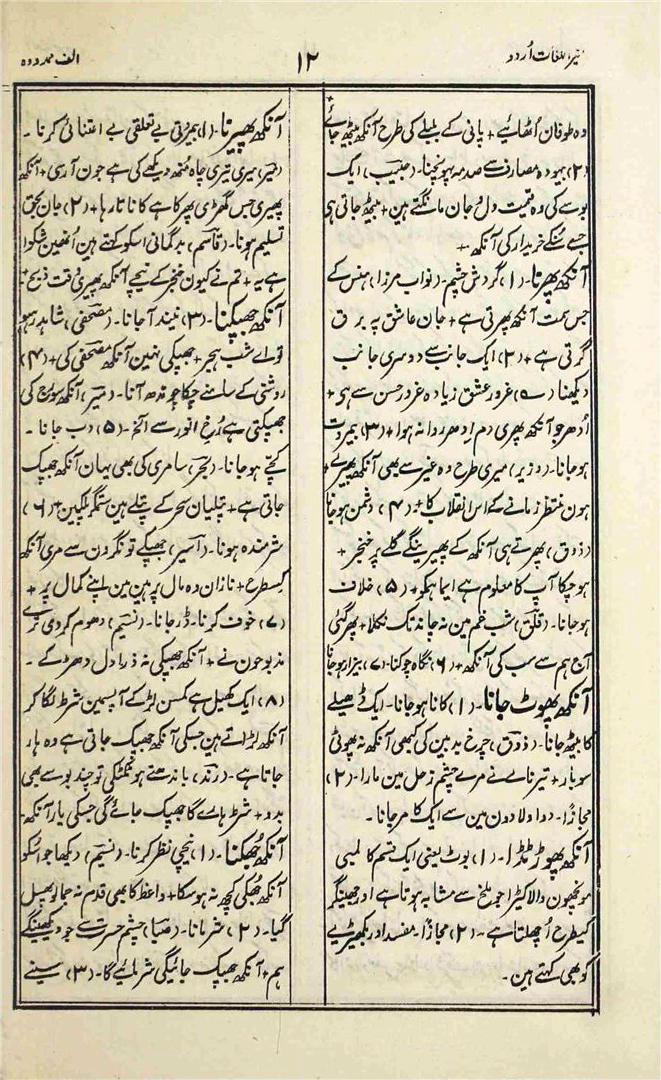 نیر اللغات اُردو
۱۲
الف ممدودہ
وہ طوفان اُٹھائے + پانی کے بلبلے کی طرح آنکھ بیٹھ جائے
(۲) بیہودہ مصارف سے صدمہ پہونچنا۔ (حبیب) ایک
بوسے کی وہ قیمت دل و جان مانگتے ہین + بیٹھ جاتی ہی
جسے سُنکے خریدار کی آنکھ +
آنکھ پھرنا۔ (۱) گردش چشم۔ (نواب مرزا) ہنس کے
جس سمت آنکھ پھرتی ہے + جان عاشق پہ برق
گرتی ہے + (۲) ایک جانب سے دوسری جانب
دیکھنا غرور عشق زیادہ غرور حسن سے ہی +
اُدھر جو آنکھ پھری دم اِدھر روانہ ہوا + (۳) بیمروت
ہوجانا۔ (وزیر) میری طرح وہ غیر سے بھی آنکھ پھیرے
ہون منتظر زمانے کے اس انقلاب کا + (۴) دشمن ہوجانا
(ذوق) پھرتے ہی آنکھ کے پھیرینگے گلے پر خنجر +
ہوچکا آپ کا معلوم ہے ایما ہمکو + (۵) خلاف
ہوجانا۔ (قلق) شب غم مین نہ چاند تک نکلا + پھرگئی
آج ہم سے سب کی آنکھ + (۶) نگاہ چوکنا۔ (۷) بیزار ہوجانا
آنکھ پھوٹ جانا۔ (۱) کانا ہوجانا۔ ایک ڈھیلے
کا بیٹھ جانا۔ (ذوق) چرخ بدبین کی کبھی آنکھ نہ پھوٹی
سو بار + تیر نالے نے مرے چشم زحل مین مارا۔ (۲)
مجازًا۔ دو اولادون مین سے ایک کا مرجانا۔
آنکھ پھوڑ ٹڈا۔ (۱) بوٹ یعنی ایک قسم کا لمبی
مونچھون والا کیڑا جو ملخ سے مشابہ ہوتا ہے اور جھینگر
کیطرح اُچھلتا ہے۔ (۲) مجازًا۔ مفسد اور بکھیڑیے
کو بھی کہتے ہین۔
آنکھ پھیرنا۔ (۱) بیمروتی بے تعلقی بے اعتنائی کرنا۔
(میر) میری تیری چاہ مُنھ دیکھے کی ہے جون آرسی + آنکھ
پھیری جس گھڑی پھر کا ہے کا ناتا رہا + (۲) جان بحق
تسلیم ہونا۔ (قاسم) بدگمانی اسکو کہتے ہین اُنھین شکوا
ہے یہ + تم نے کیون خنجر کے نیچے آنکھ پھیری وقت ذبح +
آنکھ جھپکنا۔ (۳) نیند آجانا۔ (مصحفی) شاہد رہیو
تو اے شب ہجر + جھپکی نہین آنکھ مصحفی کی + (۴)
روشنی کے سامنے چکاچوندھ آنا۔ (میر) آنکھ سورج کی
جھپکتی ہے رُخ انور سے الخ۔ (۵) دب جانا۔
کچے ہوجانا۔ (بحر) سامری کی بھی یہان آنکھ جھپک
جاتی ہے + پتلیان سحر کے پتلے ہین ستمگر پلکین + (۶)
شرمندہ ہونا۔ (اسیر) جھپکے تونگرون سے مری آنکھ
کسطرح + نازان وہ مال پر ہین مین اپنے کمال پر +
(۷) خوف کرنا۔ ڈرجانا۔ (نسیم) دھوم کردی ترے
مذبوحون نے + آنکھ جھپکی نہ ذرا دل دھڑکے۔
(۸) ایک کھیل ہے کمسن لڑکے آپسمین شرط لگا کر
آنکھ لڑاتے ہین جسکی آنکھ جھپک جاتی ہے وہ ہار
جاتا ہے۔ (رند) باندھتے ہو ٹکٹکی تو چند بوسے بھی
بدو + شرط ہارے گا جھپک جائے گی جسکی یار آنکھ۔
آنکھ جھکنا۔ (۱) نیچی نظر کرنا۔ (نسیم) دیکھا جو اسکو
آنکھ جھکی کچھ نہ ہوسکا + واعظ کا بھی قدم نہ جما پھسل
گیا۔ (۲) شرمانا۔ (صبا) چشم حسرت سے جو دیکھینگے
ہم + آنکھ جھپک جائیگی شرمائیے گا۔ (۳) سینے